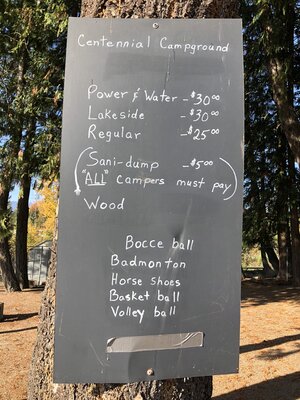 Centennial Campground
Power & Water - $30.00
Lakeside - $30.00
Regular - $25.00
(Sani-dump - $5.00
"ALL" campers must pay)
Wood
Bocce ball
Badmonton
Horse shoes
Basket ball
Volley ball